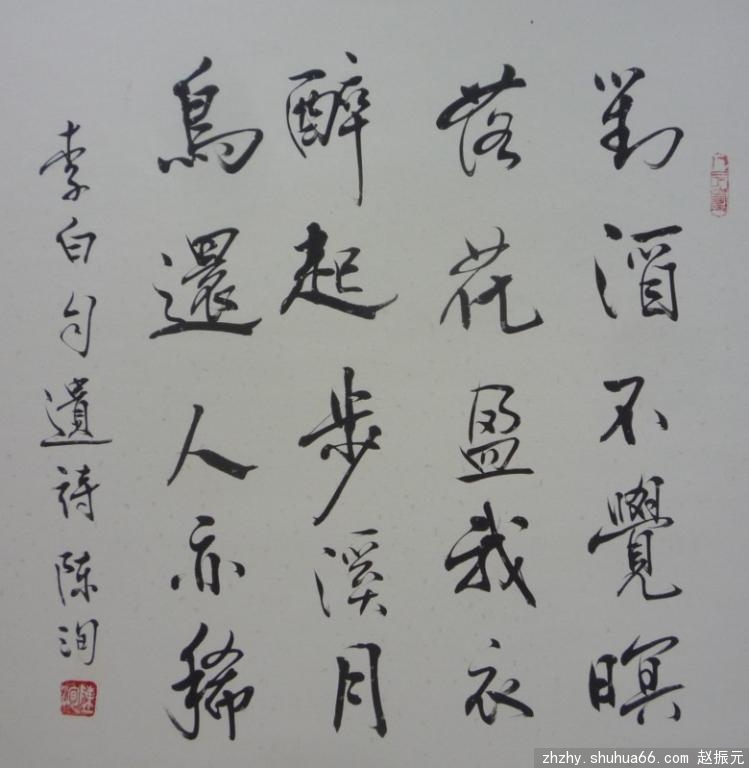 對酒不覺暝
落花盈我衣
醉起步溪月
鳥還人亦稀
李白自遺詩 陳洵
zhzhy.shuhua66.com 赵振元